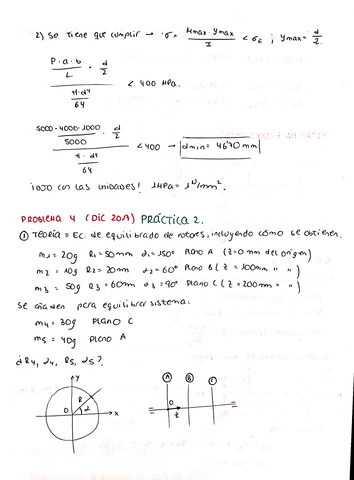 2) Se tiene que cumplir → σ = Mmax · Ymax / I < σE ; Ymax = d/2
P·a·b / L · d/2
π·d⁴ / 64
< 400 MPa.
5000·4000·1000 / 5000 · d/2
π · d⁴ / 64
< 400 → dmin = 46'70 mm
¡OJO con las unidades! 1MPa = 1 N/mm².
PROBLEMA 4 (DIC 2017) PRÁCTICA 2.
① TEORÍA = Ec. de equilibrado de rotores, incluyendo cómo se obtienen.
m1 = 20g R1 = 50mm α1 = 150° PLANO A (z=0 mm del origen)
m2 = 10g R2 = 20mm α2 = 60° PLANO B (z = 100mm " ")
m3 = 50g R3 = 60mm α3 = 90° PLANO C (z = 200mm " ")
Se añaden para equilibrar sistema:
m4 = 30g PLANO C
m5 = 40g PLANO A
¿R4, α4, R5, α5?
y
R
O
α
x
A B C
O
z